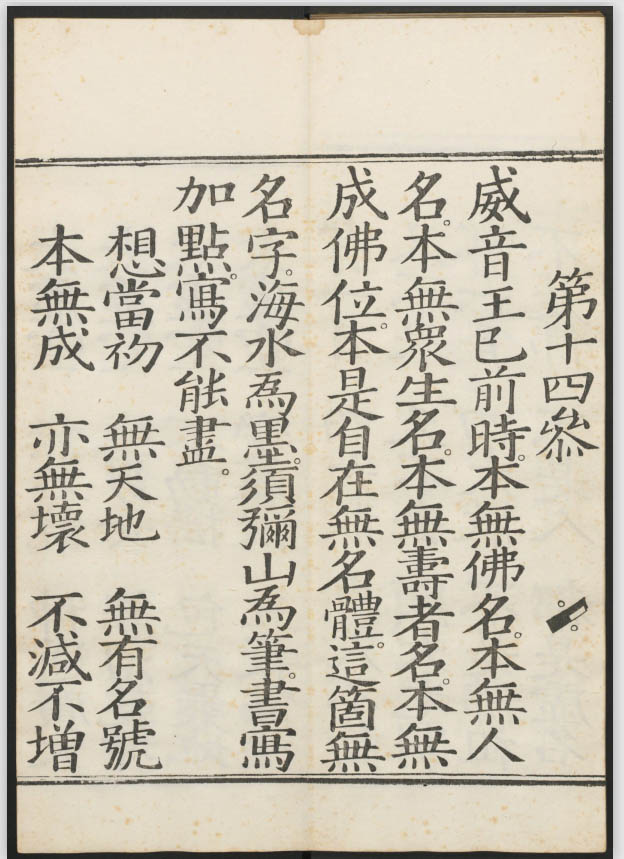 第十四叅
威音王已前時。本無佛名。本無人
名。本無衆生名。本無壽者名。本無
成佛位。本是自在無名體。這箇無
名字。海水為墨。須彌山為筆。書寫
加點。寫不能盡。
想當初　無天地　無有名號
本無成　亦無壞　不減不增